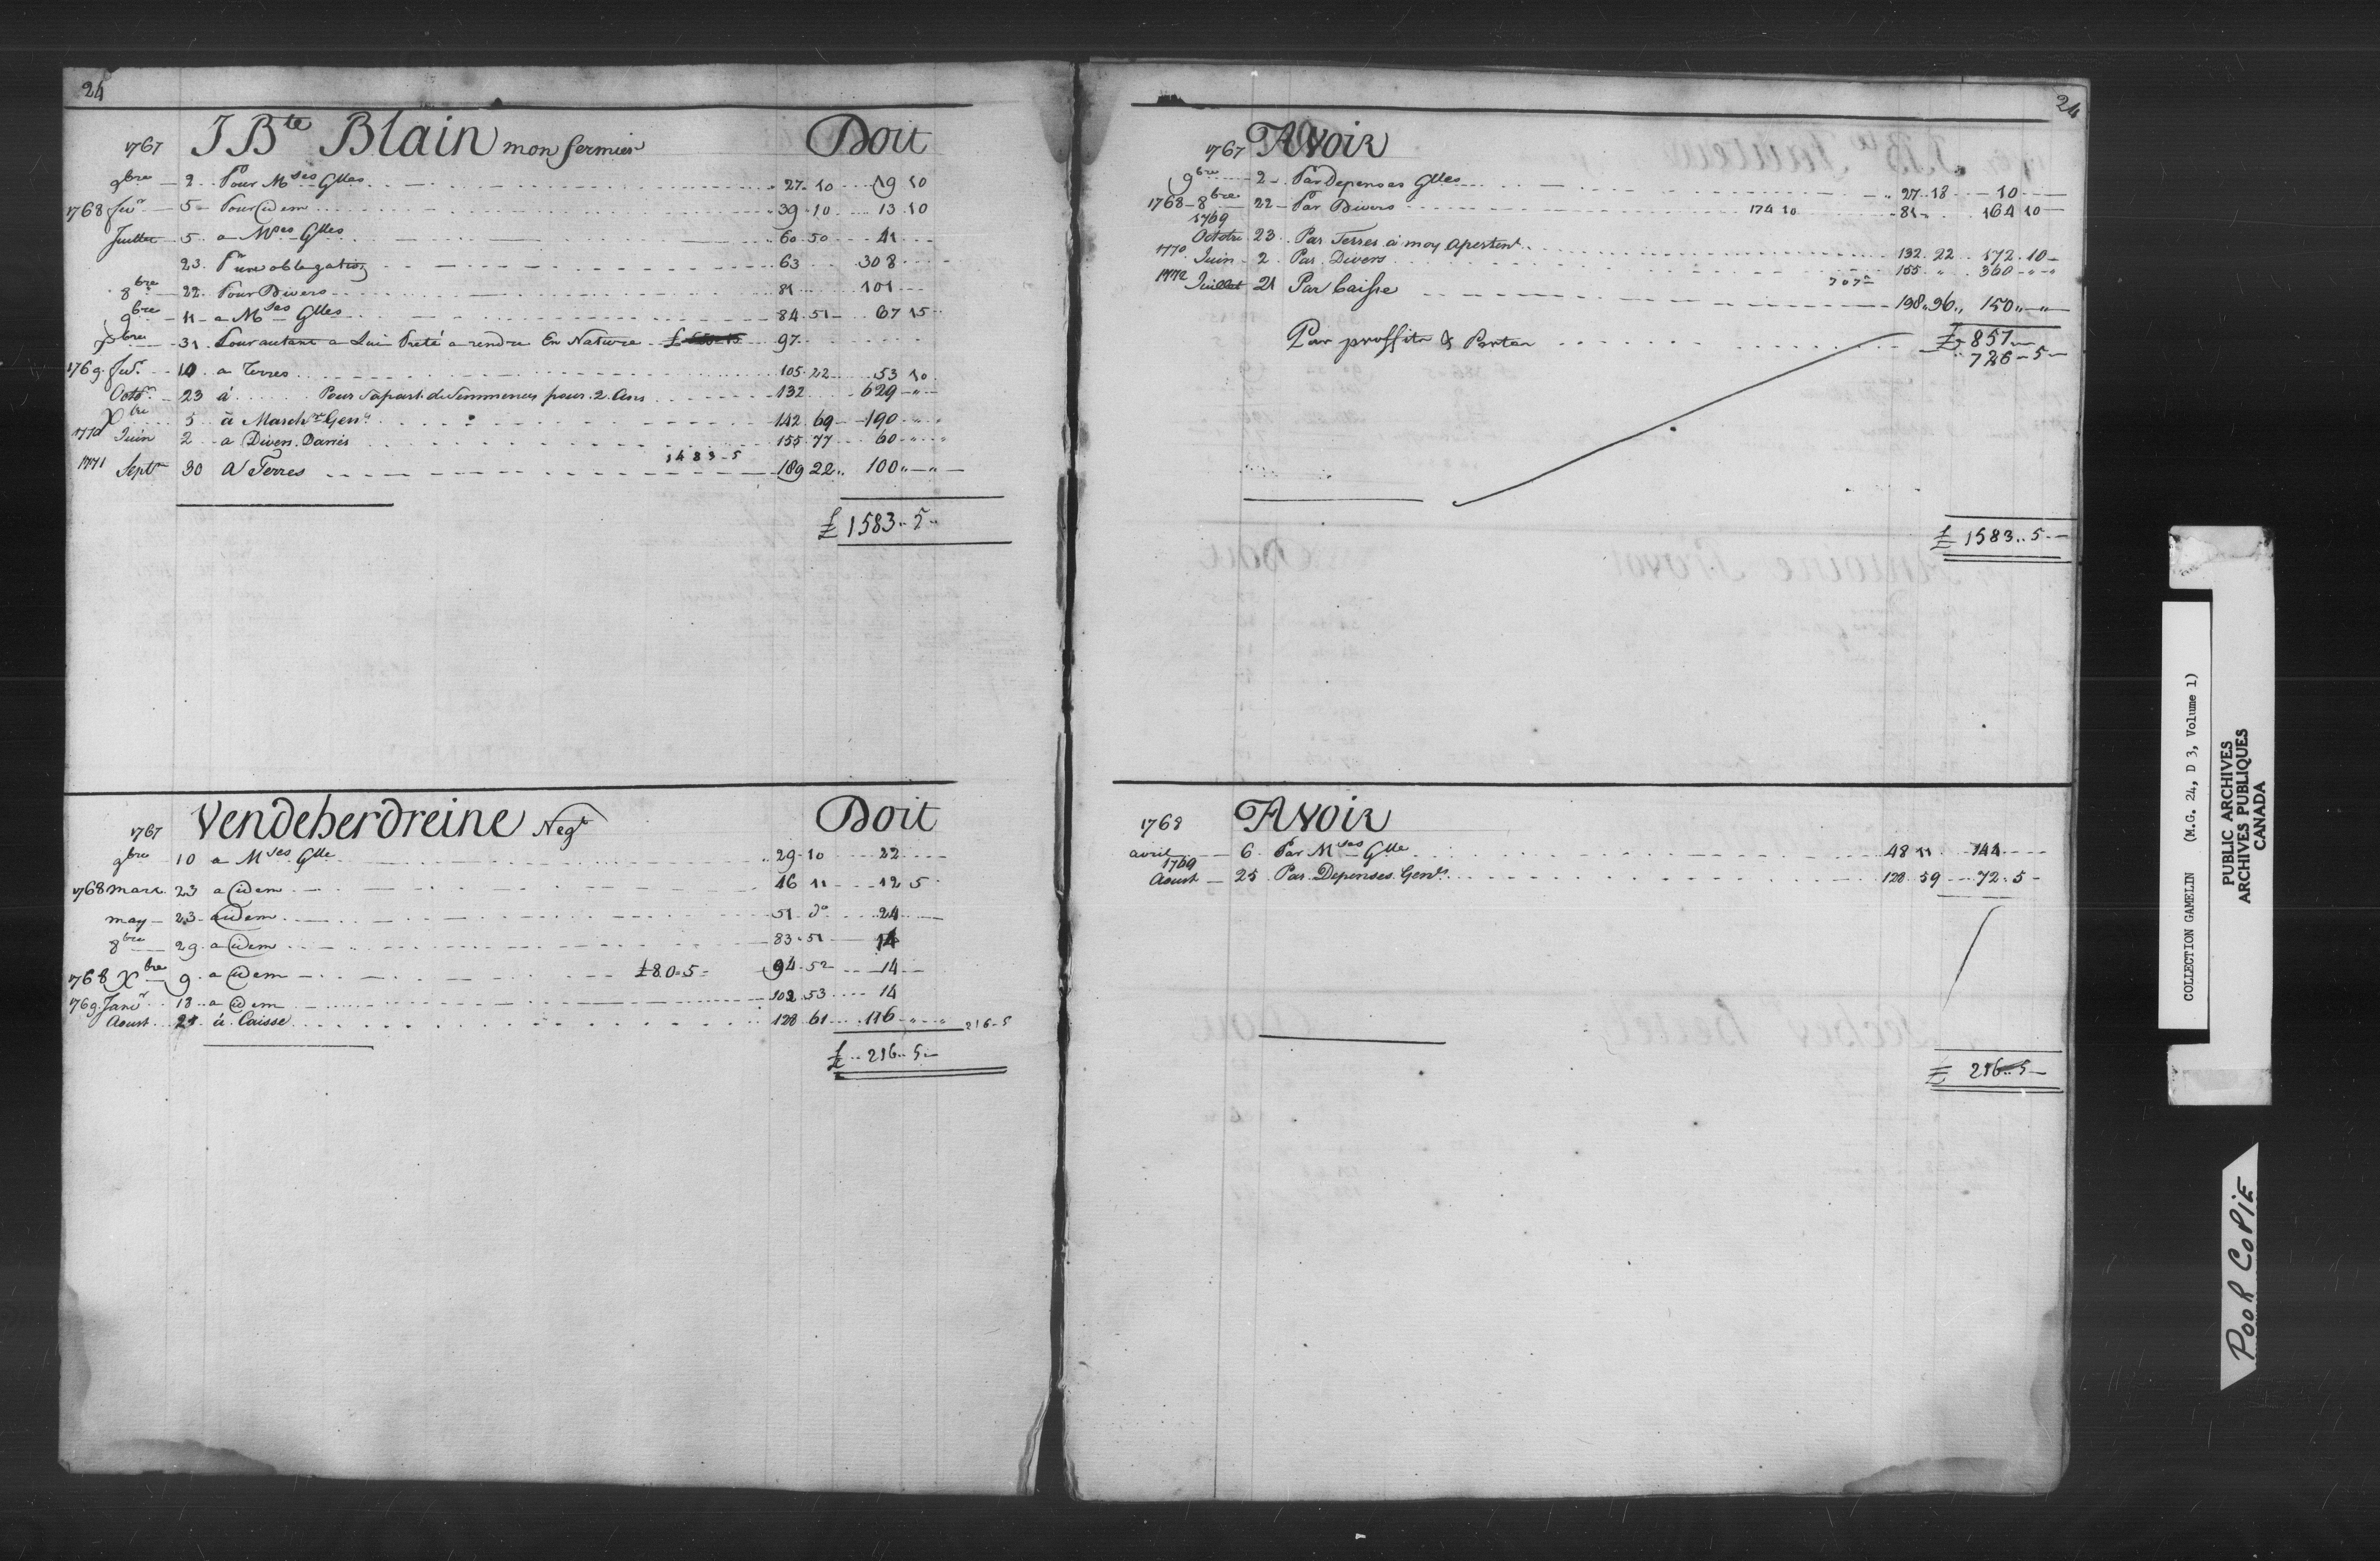 24
1767 J Bte Blain mon fermier Doit
9bre 2 Pour Mses Glles 27 10 19 10
1768 Jer 5 Pour idem 39 10 13 10
Juillet 5 a Mses Glles 60 50 41
23 Pr une obligation 63 308
8bre 22 Pour Divers 81 101
9bre 11 a Mses Glles 84 51 67 15
Xbre 31 Pour autant a Lui Preté a rendre En Nature 97
1769 Jer 10 a Terres 105 22 53 10
Octbr 23 á Pour Sapart de Semmences pour 2 Ans 132 629
Xbre 5 à Marchses Genls 142 69 190
1770 Juin 2 a Divers Darriés 155 77 60
1483-5
1771 Septre 30 A Terres 189 22 100
£ 1583 5
1767 Vendeherdreine Negt Doit
9bre 10 a Mses Glle 29 10 22
1768 Mars 23 a idem 46 11 12 5
may 23 a idem 51 do 24
8bre 29 a idem 83 51 14
1768 Xbre 9 a idem £80=5= 94 52 14
1769 Janr 13 a idem 102 53 14
Aoust 25 à Caisse 128 61 116 216-5
£ 216 5
24
1767 Avoir
9bre 2 Par Depenses Glles 27 18 10
1768 8bre 22 Par Divers 174 10 81 164 10
1769
Octobre 23 Par Terres à moy apartent 132 22 172 10
1770 Juin 2 Par Divers 155 360
707
1772 Juillet 21 Par Caisse 198 96 150
£ 857
Par proffits & Pertes 726-5
£ 1583 5
1768 Avoir
avril 6 Par Mses Glle 48 11 144
1769
Aoust 25 Par Depenses Genls 128 59 72 5
£ 216 5
COLLECTION GAMELIN (M.G. 24, D 3, Volume 1)
PUBLIC ARCHIVES
ARCHIVES PUBLIQUES
CANADA
POOR COPIE